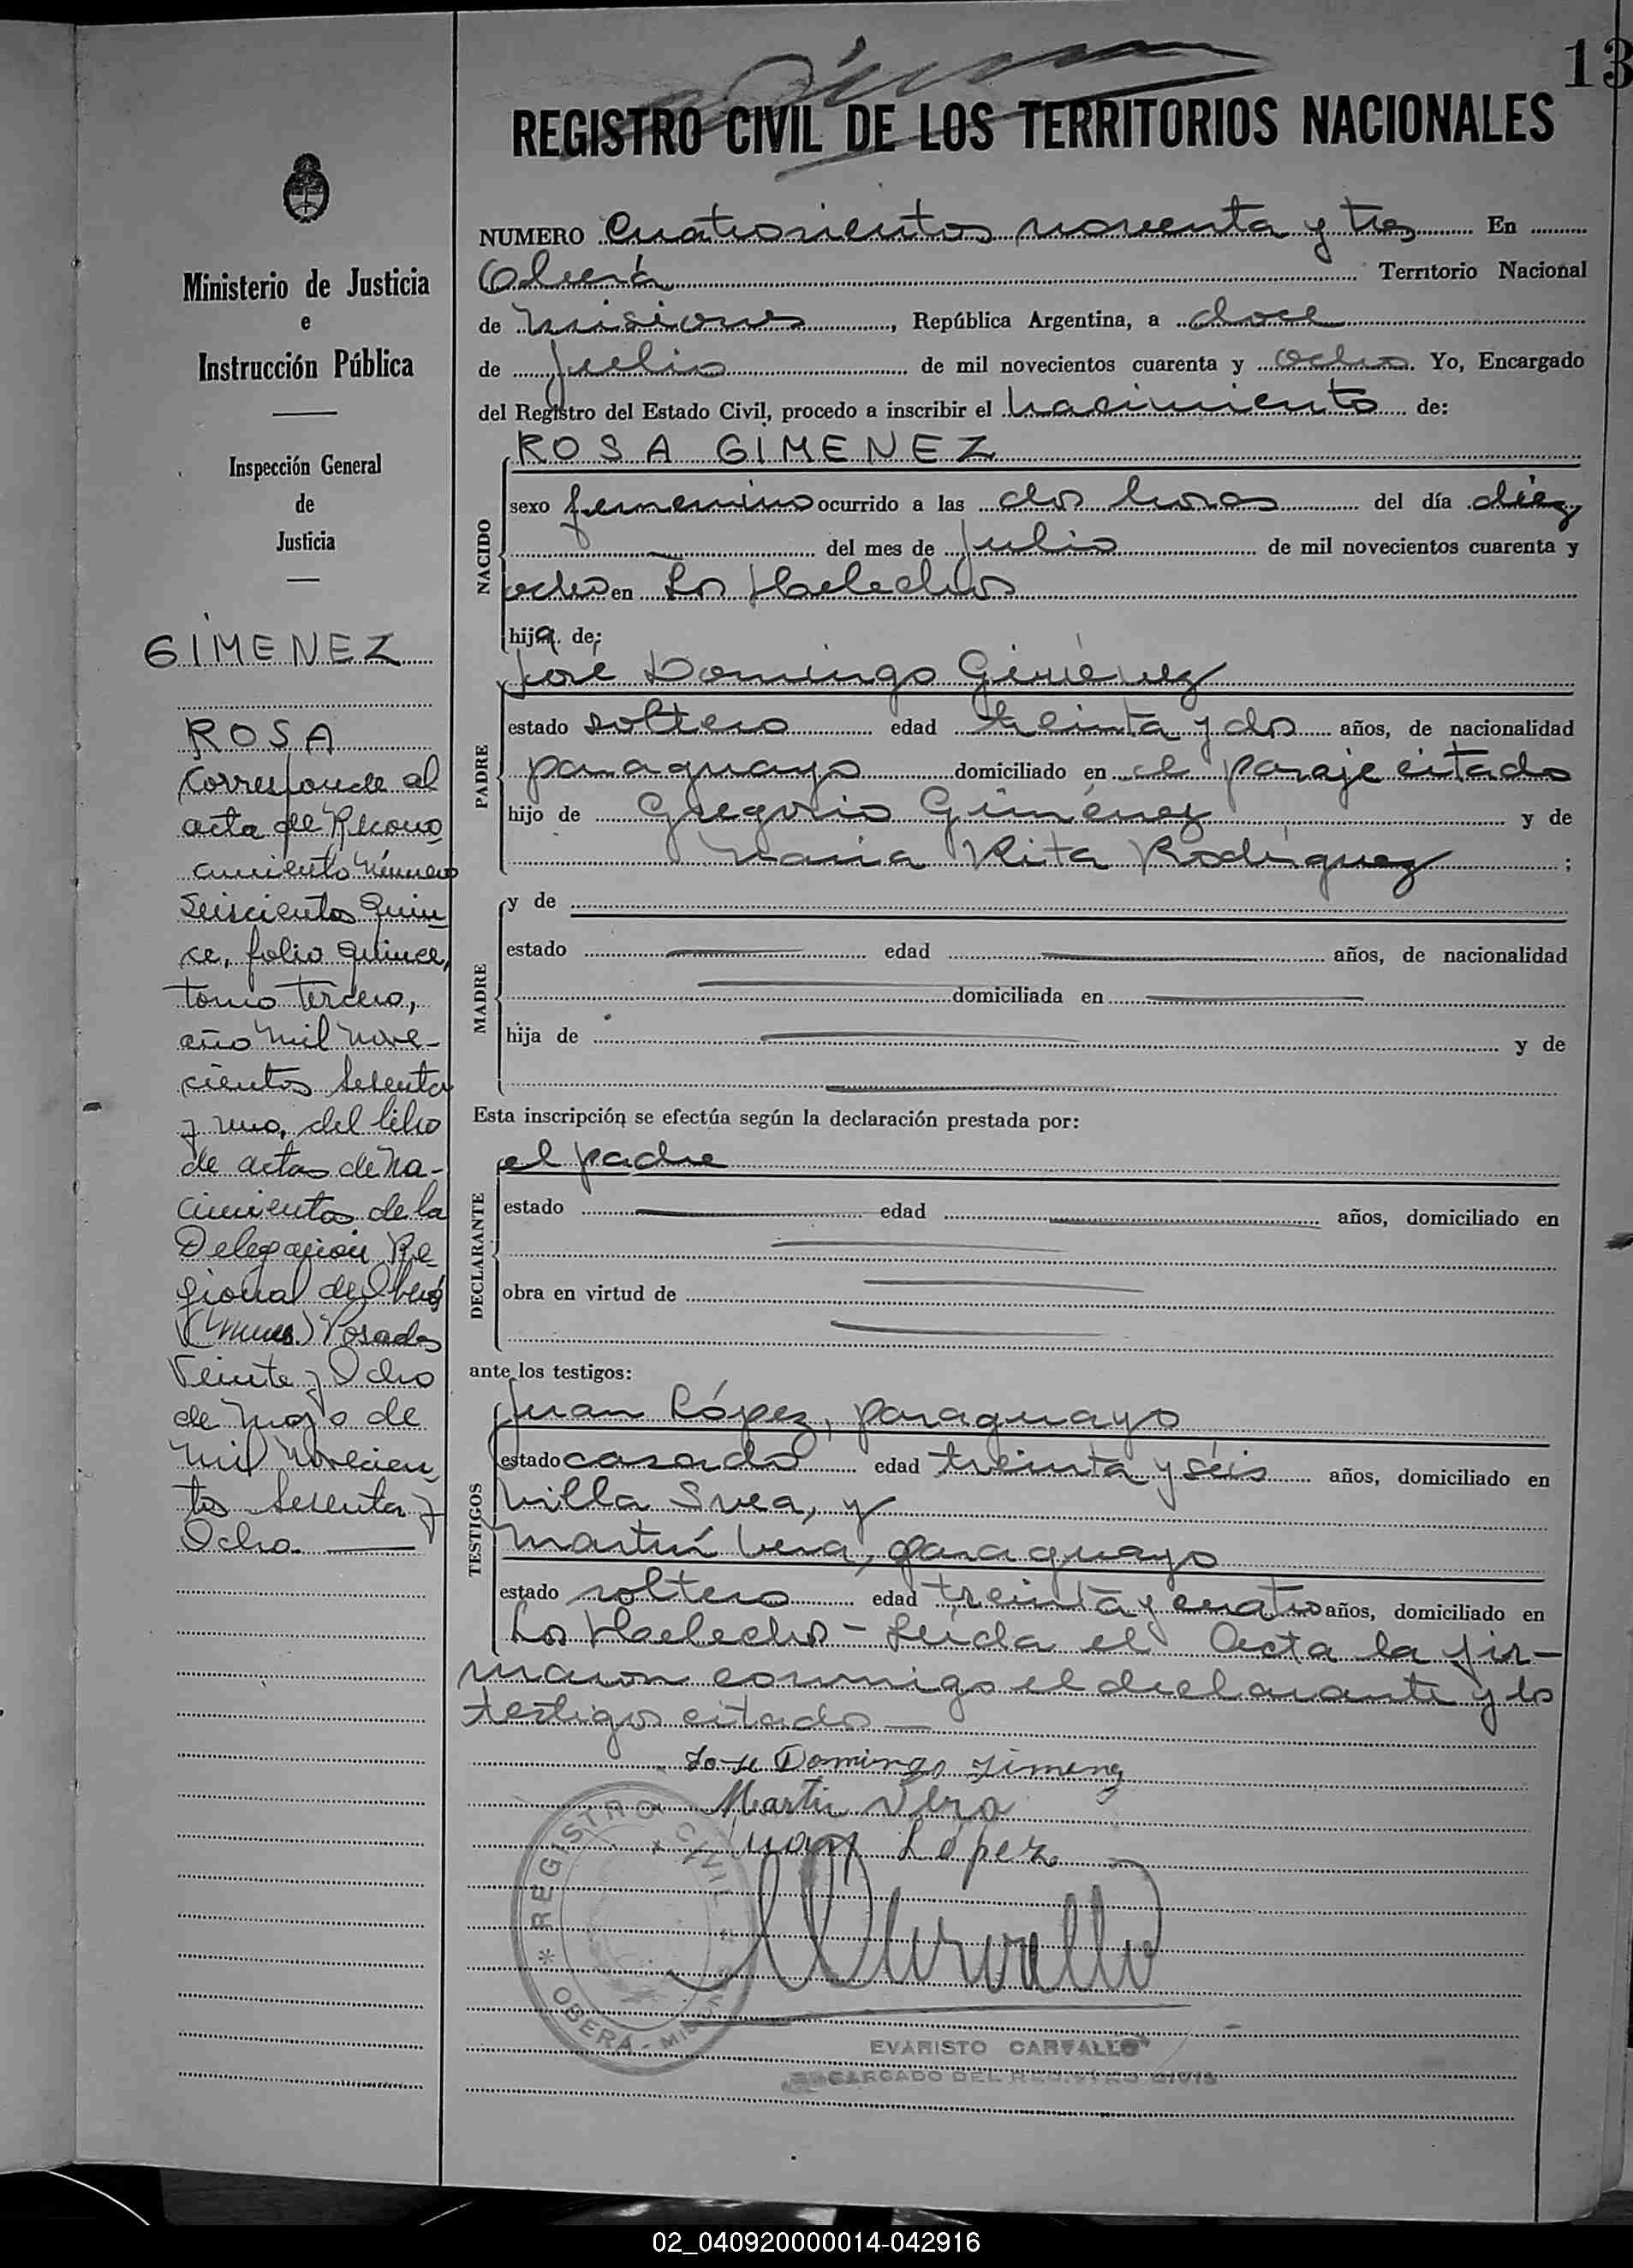 13
REGISTRO CIVIL DE LOS TERRITORIOS NACIONALES
Ministerio de Justicia
e
Instrucción Pública
Inspección General
de
Justicia
GIMENEZ
ROSA
Corresponde al
acta de Recono
cimiento número
Seiscientos Quin
ce, folio quince,
tomo tercero,
año mil nove-
cientos sesenta
y uno, del libro
de actas de na-
cimientos de la
Delegación Re
gional de Oberá
(Mnes.) Posadas
Veinte y Ocho
de Mayo de
mil novecien
tos sesenta y
Ocho.
NUMERO Cuatrocientos noventa y tres En
Oberá Territorio Nacional
de Misiones, República Argentina, a doce
de Julio de mil novecientos cuarenta y ocho. Yo, Encargado
del Registro del Estado Civil, procedo a inscribir el nacimiento de:
NACIDO
ROSA GIMENEZ
sexo femenino ocurrido a las dos horas del día diez
del mes de Julio de mil novecientos cuarenta y
ocho en Los Helechos
hija de;
PADRE
José Domingo Giménez
estado soltero edad treinta y dos años, de nacionalidad
paraguayo domiciliado en el paraje citado
hijo de Gregorio Giménez y de
María Rita Rodríguez ;
MADRE
y de
estado edad años, de nacionalidad
domiciliada en
hija de y de
Esta inscripción se efectúa según la declaración prestada por:
DECLARANTE
el padre
estado edad años, domiciliado en
obra en virtud de
ante los testigos:
TESTIGOS
Juan López, paraguayo
estado casado edad treinta y séis años, domiciliado en
Villa Svea, y
Martín Vera, paraguayo
estado soltero edad treinta y cuatro años, domiciliado en
Los Helechos - Leída el Acta la fir-
maron conmigo el declarante y los
testigos citados
Jose Domingo Jimenez
Martin Vera
Juan López
REGISTRO CIVIL
OBERÁ - MISIONES
EVARISTO CARVALLO
ENCARGADO DEL REGISTRO CIVIL
02_040920000014-042916